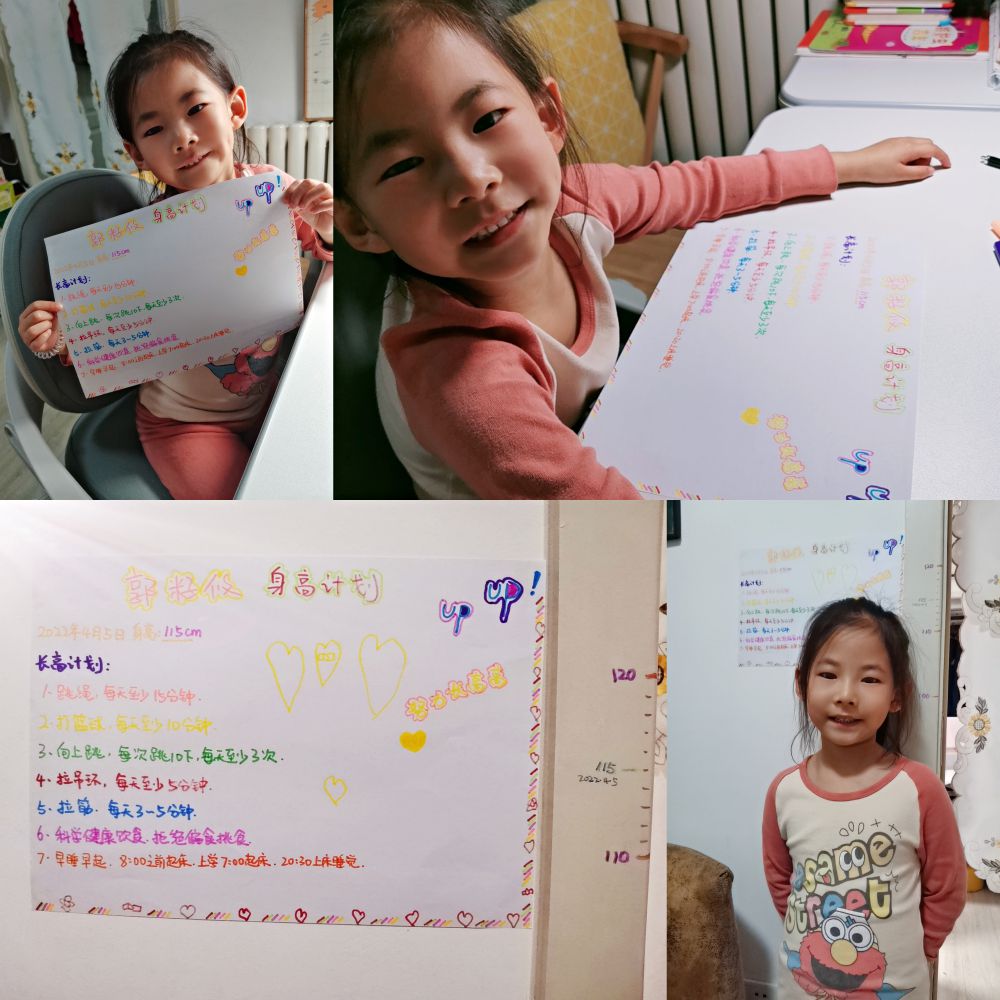 身高计划
UP UP!
2022年4月5日 身高:115cm
长高计划:
1、跳绳,每天至少15分钟.
2、打篮球,每天至少10分钟.
3、向上跳,每次跳10下,每天至少3次.
4、拉吊环,每天至少5分钟.
5、拉筋.每天3-5分钟.
6、科学健康饮食.拒绝偏食挑食.
7、早睡早起.8:00之前起床.上学7:00起床.20:30上床睡觉.
120
115
2022.4.5
110
Sesame
Street